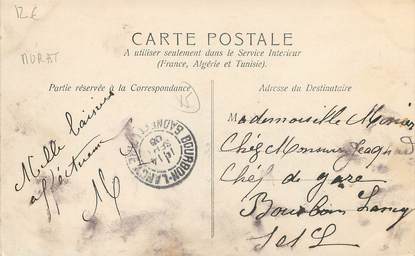 12 €
MURAT
CARTE POSTALE
A utiliser seulement dans le Service Intérieur
(France, Algérie et Tunisie).
Partie réservée à la Correspondance
Adresse du Destinataire
Mille baisers
affectueux
M
BOURBON-LANCY
14
08
Mademoiselle
Chez Monsieur
Chef de gare
Bourbon Lancy
S et L